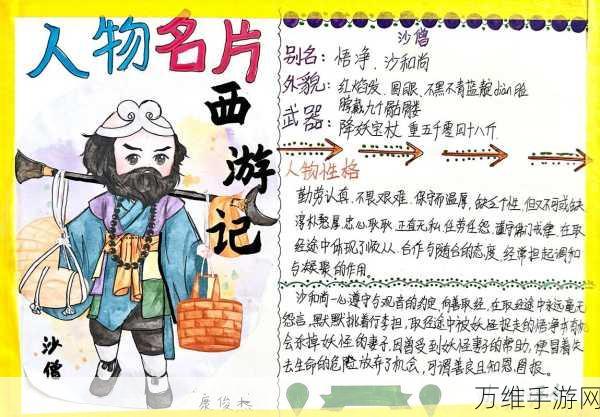 人物名片
西游记
沙僧
康俊杰
沙僧
别名：悟净、沙和尚
外貌：红焰发、圆眼、不黑不青蓝靛diàn脸
脖戴九个骷髅
武器：降妖宝杖 重五千零四十八斤
人物性格
勤劳认真，不畏艰难，保守而温厚，缺乏个性，但又不可或缺
淳朴憨厚，忠心耿耿，正直无私，任劳任怨，谨守佛门戒律，在取
经途中体现了收从、合作与随合的态度，经常担起调和
与凝聚的作用。
沙和尚一心遵守与观音的约定 向善取经，在取经途中未远毫无
怨言，默默挑着行李担，取经途中被妖怪捉走的悟净本有机
会杀掉妖怪的妻子，因曾受到妖怪妻子的帮助，便冒着失
去生命的危险放弃了机会，可谓善良且知恩图报。
万维手游网